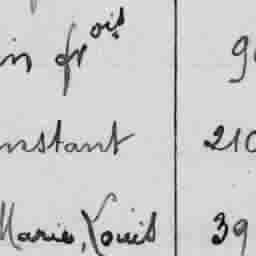 in frois 9
nstant 210
Marie, Louis 39